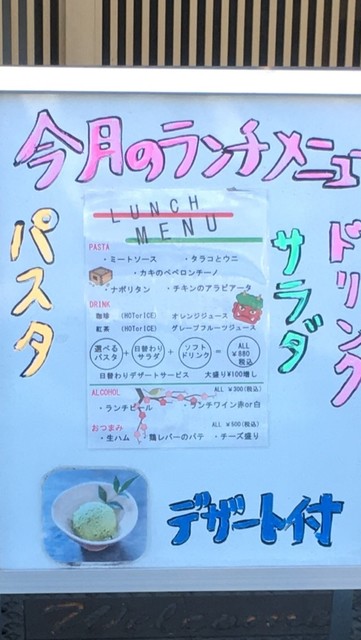 今月のランチメニュ
パスタ
サラダ
ドリンク
LUNCH
MENU
PASTA
・ミートソース ・タラコとウニ
・カキのペペロンチーノ
・ナポリタン ・チキンのアラビアータ
DRINK
珈琲 (HOTorICE) オレンジジュース
紅茶 (HOTorICE) グレープフルーツジュース
選べるパスタ + 日替わりサラダ + ソフトドリンク = ALL ¥880 税込
日替わりデザートサービス 大盛り¥100増し
ALCOHOL ALL ¥300(税込)
・ランチビール ・ランチワイン赤or白
おつまみ ALL ¥500(税込)
・生ハム ・鶏レバーのパテ ・チーズ盛り
デザート付